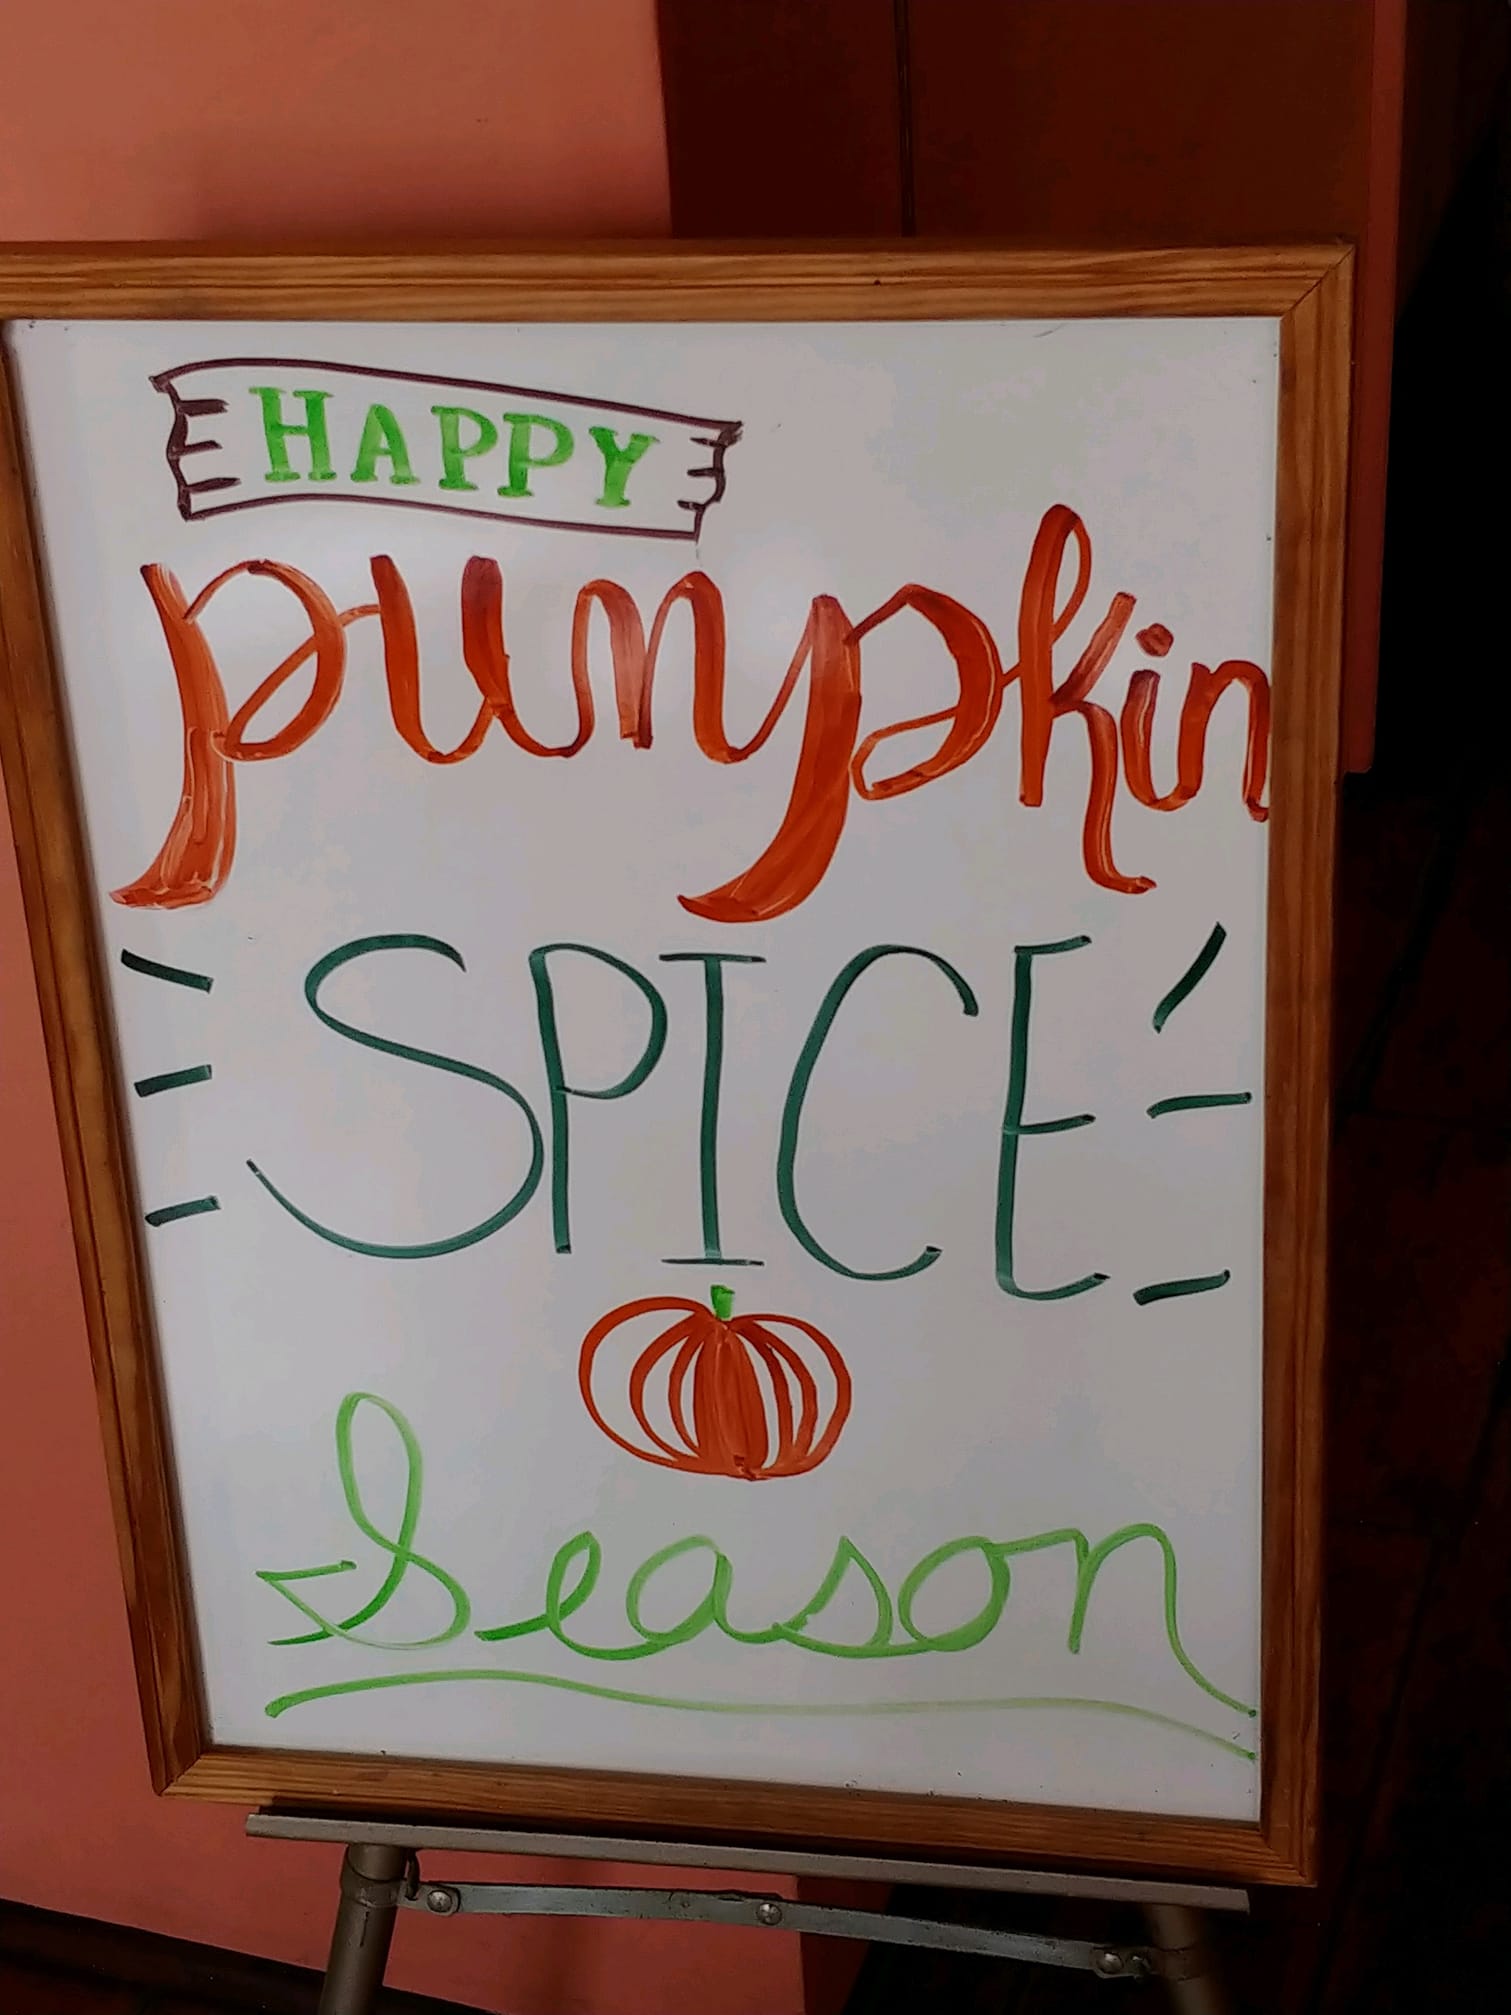 HAPPY
pumpkin
SPICE
Season